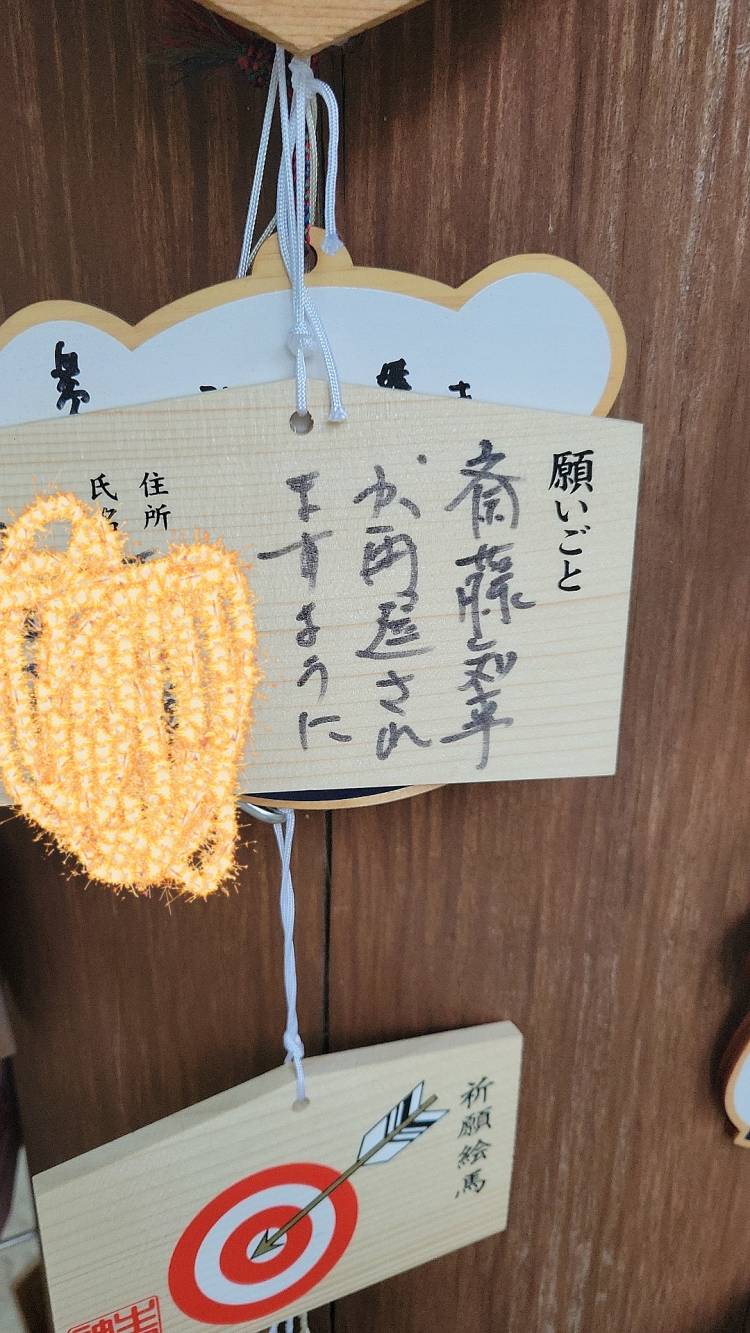 願いごと
斎藤知事
が再選され
ますように
住所
氏名
祈願絵馬